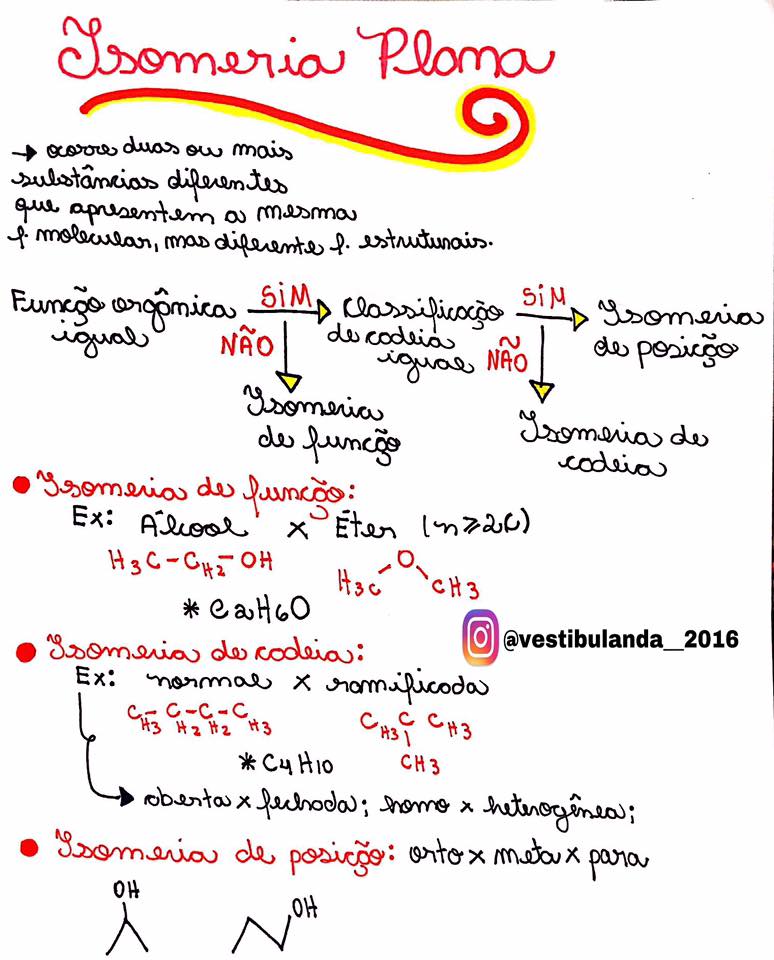 Isomeria Plana
→ ocorre duas ou mais
substâncias diferentes
que apresentem a mesma
f. molecular, mas diferente f. estruturais.
Função orgânica igual
SIM
NÃO
Classificação de cadeia igual
SIM
NÃO
Isomeria de posição
Isomeria de função
Isomeria de cadeia
● Isomeria de função:
Ex: Álcool x Éter (n≥2C)
H3C-CH2-OH
H3C O CH3
* C2H6O
@vestibulanda_2016
● Isomeria de cadeia:
Ex: normal x ramificada
CH3-CH2-CH2-CH3
CH3 C CH3
CH3
* C4H10
aberta x fechada; homo x heterogênea;
● Isomeria de posição: orto x meta x para
OH
OH